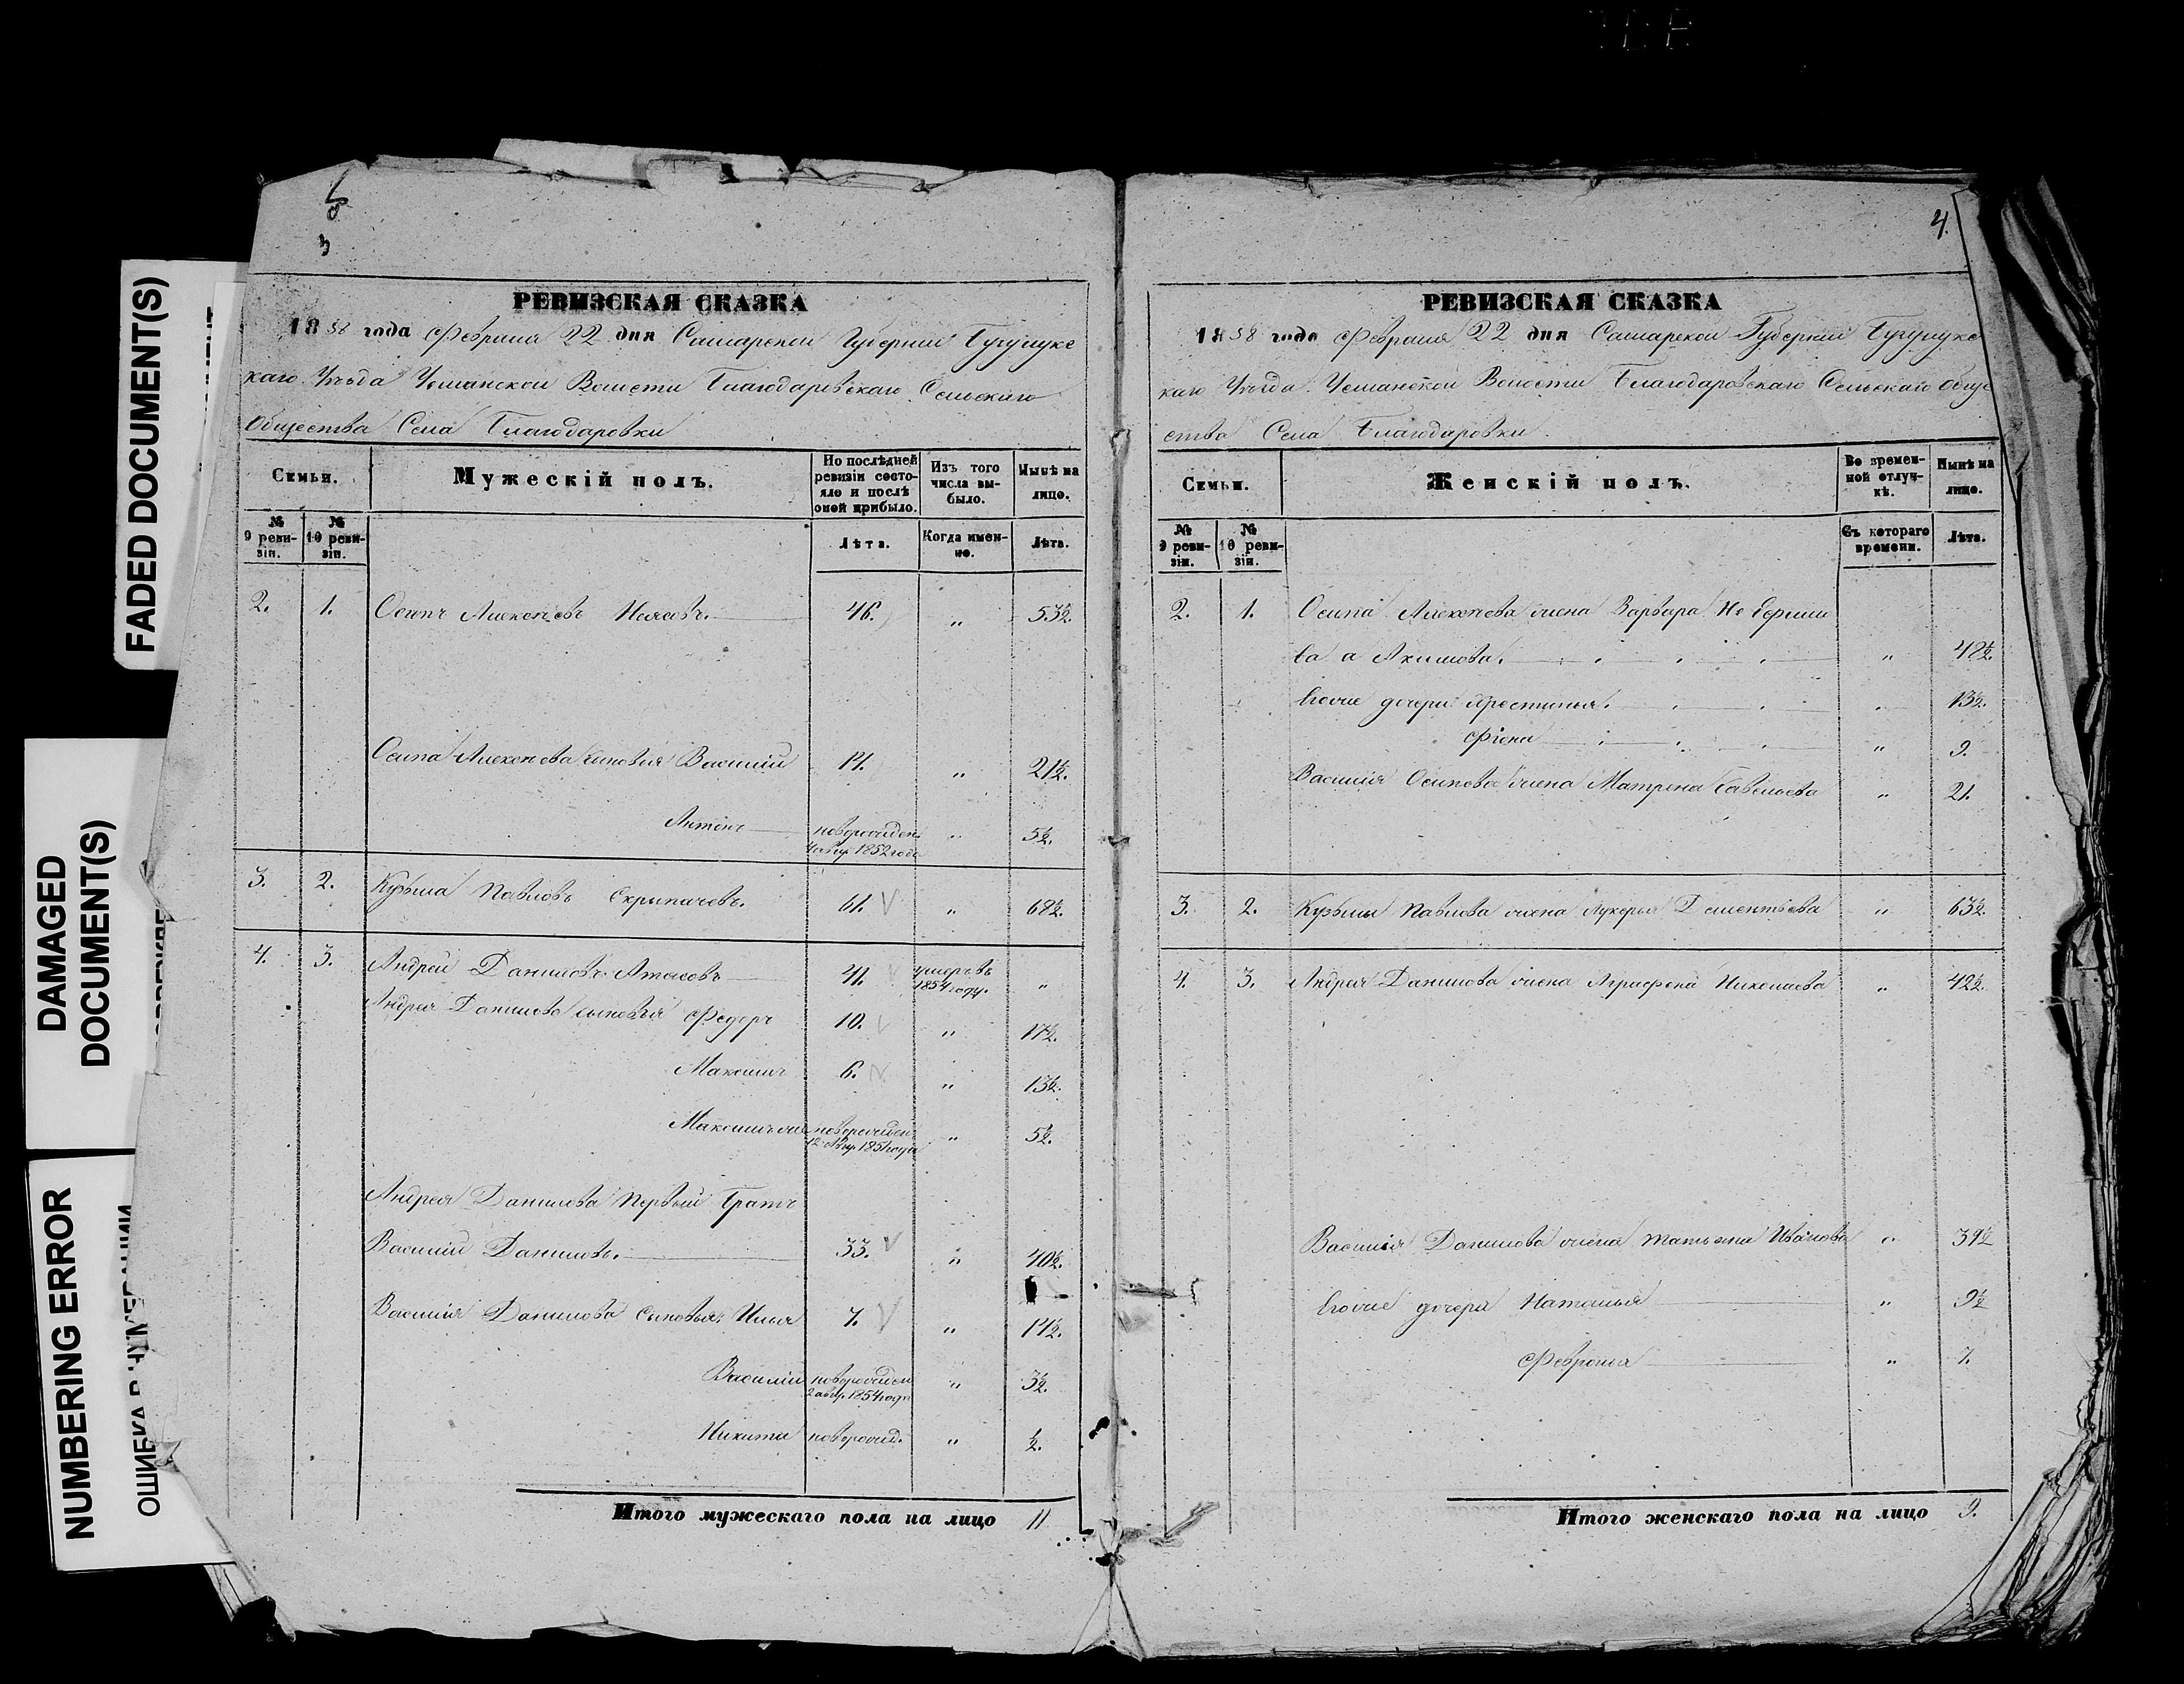 FADED DOCUMENT(S)
DAMAGED
DOCUMENT(S)
NUMBERING ERROR
ОШИБКА В НУМЕРАЦИИ
3
РЕВИЗСКАЯ СКАЗКА
1858 года Февраля 22 дня Самарской Губернии Бугурус
каго Уѣзда Волости Благодаровскаго Сельскаго
Общества Села Благодаровки
Семьи.
Мужескій полъ.
По послѣдней ревизіи состояло и послѣ оной прибыло.
Изъ того числа выбыло.
Нынѣ на лицо.
№ 9 ревизіи.
№ 10 ревизіи.
Лѣта.
Когда именно.
Лѣта.
2. 1. Осипъ Алексѣевъ 46. " 53½.
Осипа Алексѣева сыновья Василий 14. " 21½.
Антонъ новорожден. " 5½.
1852 года
3. 2. Кузьма Павловъ Скрыпачевъ. 61. " 68½.
4. 3. Андрей Даниловъ 41. умеръ въ 1854 году. "
Андрея Данилова сыновья Федоръ 10. " 17½.
Максимъ 6. " 13½.
Максимъ же новорожден. " 5½.
12 1851 года
Андрея Данилова Первый Братъ
Василий Даниловъ. 33. " 40½.
Василия Данилова сыновья Илья 7. " 14½.
Василий новорожден " 3½.
2 1854 года
Никита новорожд. " ½.
Итого мужескаго пола на лицо 11
4.
РЕВИЗСКАЯ СКАЗКА
1858 года Февраля 22 дня Самарской Губернии Бугурус
каго Уѣзда Волости Благодаровскаго Сельскаго Обще
ства Села Благодаровки.
Семьи.
Женскій полъ.
Во временной отлучкѣ.
Нынѣ на лицо.
№ 9 ревизіи.
№ 10 ревизіи.
Съ котораго времени.
Лѣта.
2. 1. Осипа Алексѣева жена Варвара
ва а Акимова. " 48½.
Егоже дочери Хрестинья. " 13½.
Фіона " 9.
Василия Осипова жена Матрена Савельева " 21.
3. 2. Кузьмы Павлова жена Лукерья Дементьева " 63½.
4. 3. Андрея Данилова жена Аграфена Николаева " 42½.
Василия Данилова жена Татьяна Иванова " 39½
Егоже дочери Наталья " 9½
Февронья " 7.
Итого женскаго пола на лицо 9.